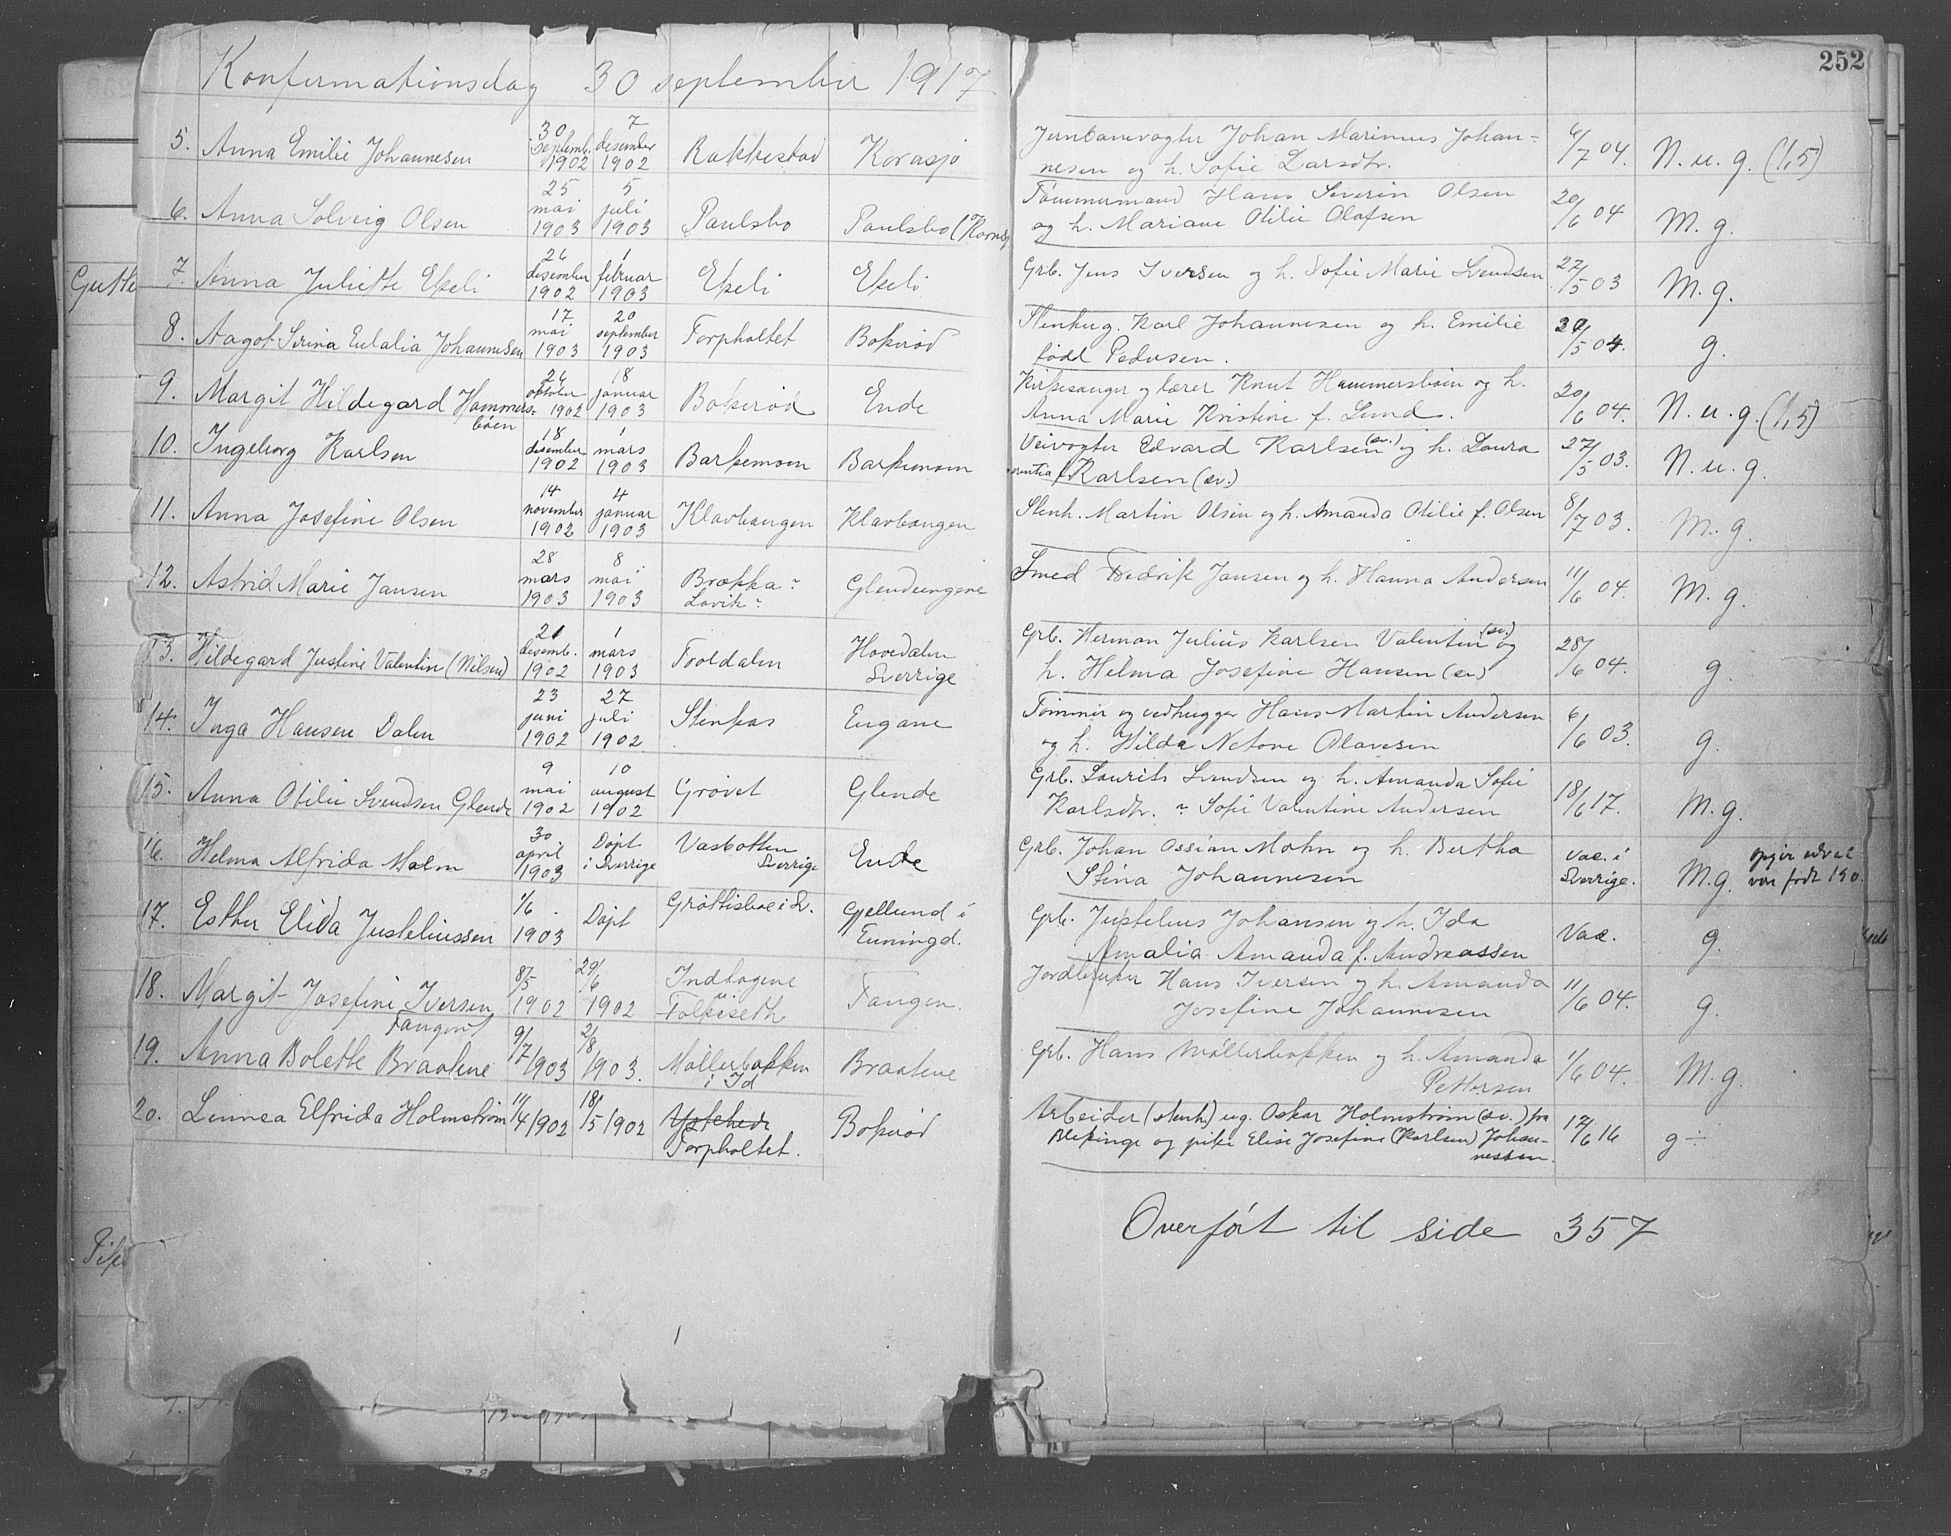 252
Konfirmationsdag 30 september 1917
5. Anna Emilie Johannesen 30 septemb. 1902 7 desember 1902 Rakkestad Kornsjø Jernbanevogter Johan Marinius Johan-
nesen og h. Sofie Larsdtr. 6/7 04. N. u. g. (1,5)
6. Anna Solveig Olsen 25 mai 1903 5 juli 1903 Paulsbo Paulsbo (Kornsj Tømmermand Hans Severin Olsen
og h. Mariane Otilie Olafsen 20/6 04 M. g.
7. Anna Juliette Ekeli 26 desember 1902 1 februar 1903 Ekeli Ekeli Grb. Jens Iversen og h. Sofie Marie Svendsen 27/5 03 M. g.
8. Aagot Serina Eulalia Johannesen 17 mai 1903 20 september 1903 Torpholtet Bokerød Stenhug. Karl Johannesen og h. Emilie
født Pedersen. 30/5 04. g.
9. Margit Hildegard Hammers-
bøen 26 oktober 1902 18 januar 1903 Bokerød Ende Kirkesanger og lærer Knut Hammersbøen og h.
Anna Marie Kristine f. Lund. 20/6 04. N. u. g. (1,5)
10. Ingeborg Karlsen 18 desember 1902 1 mars 1903 Barkemoen Barkemoen Veivogter Edvard Karlsen (sv.) og h. Laura
rentia f. Karlsen (sv.) 27/5 03. N. u. g.
11. Anna Josefine Olsen 14 november 1902 4 januar 1903 Klavhaugen Klavhaugen Stenh. Martin Olsen og h. Amanda Otilie f. Olsen 8/7 03. M. g.
12. Astrid Marie Jansen 28 mars 1903 8 mai 1903 Brække
Lovik Glendeengene Smed Fredrik Jansen og h. Hanna Andersen 11/6 04. M. g.
13. Hildegard Justine Valentin (Nilsen) 21 desemb. 1902 1 mars 1903 Tooldalen Hovedalen
Sverrige Grb. Herman Julius Karlsen Valentin (sv.) og
h. Helma Josefine Hansen (sv.) 28/6 04. g.
14. Inga Hansen Dalen 23 juni 1902 27 juli 1902. Stenkas Engane Tømmer og vedhugger Hans Martin Andersen
og h. Hilda Netove Olavesen 6/6 03. g.
15. Anna Otilie Svendsen Glende 9 mai 1902 10 august 1902 Grøvet Glende Grb. Laurits Svendsen og h. Amanda Sofie
Karlsdtr. Sofie Valentine Andersen 18/6 17. M. g.
16. Helma Alfrida Malm 30 april 1903 Døpt i Sverrige Vasbotten
Sverrige Ende Grb. Johan Ossian Mohn og h. Bertha
Stina Johannesen Vac. i
Sverrige. M. g. opgir
var født 190.
17. Esther Elida Justeliussen 1/6 1903 Døpt i Sv. Gjellund i
Enningd. Grb. Justelius Johansen og h. Ida
Amalia Amanda f. Andreassen Vac. g.
18. Margit Josefine Iversen
Tangen 8/5 1902 29/6 1902 Indtagene
Folkiseth Tangen. Jordbruker Hans Iversen og h. Amanda
Josefine Johannesen 11/6 04. g.
19. Anna Bolette Braatene 9/7 1903 2/8 1903. Møllerbakken
i Id Braatene Grb. Hans Møllerbakken og h. Amanda
Pettersen 1/6 04. M. g.
20. Linnea Elfrida Holmstrøm 11/4 1902 18/5 1902 Ystehede
Torpholtet. Bokerød Arbeider (stenh) ug. Oskar Holmstrøm (sv.) fra
Blekinge og pike Elise Josefine (Karlsen) Johan-
nessen. 17/6 16 g ÷
Overført til side 357
Gutte